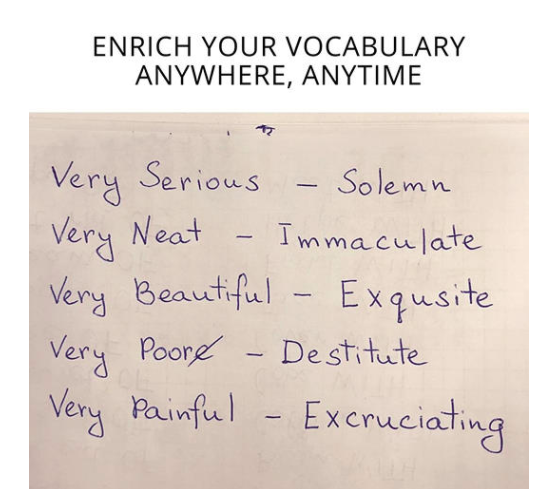 ENRICH YOUR VOCABULARY
ANYWHERE, ANYTIME
Very Serious – Solemn
Very Neat – Immaculate
Very Beautiful – Exqusite
Very Poor – Destitute
Very Painful – Excruciating